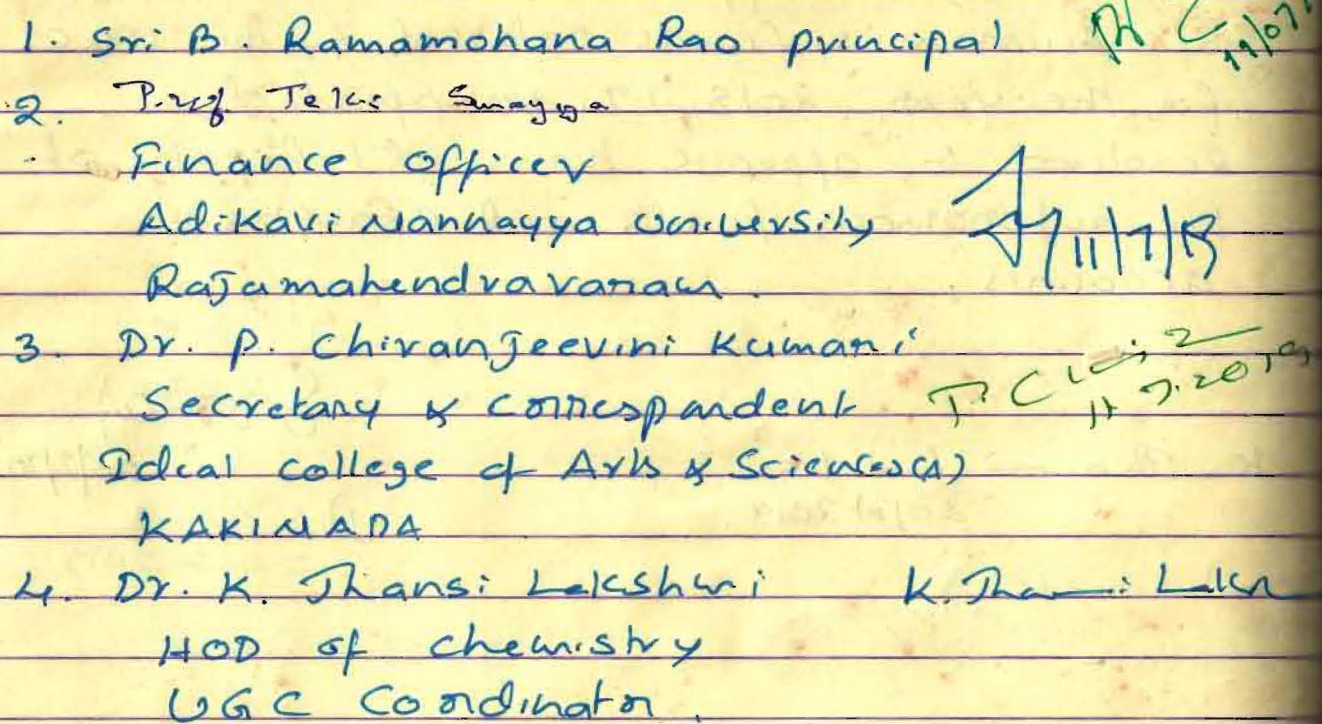 1. Sri B. Ramamohana Rao principal
2. Prof. Teki Surayya
Finance officer
Adikavi Nannayya University 11/7/19
Rajamahendravaram.
3. Dr. P. Chiranjeevini Kumari
Secretary & correspondent
Ideal college of Arts & Sciences(A)
KAKINADA
4. Dr. K. Jhansi Lakshmi K. Jhansi Laksh
HOD of chemistry
UGC Coordinator.